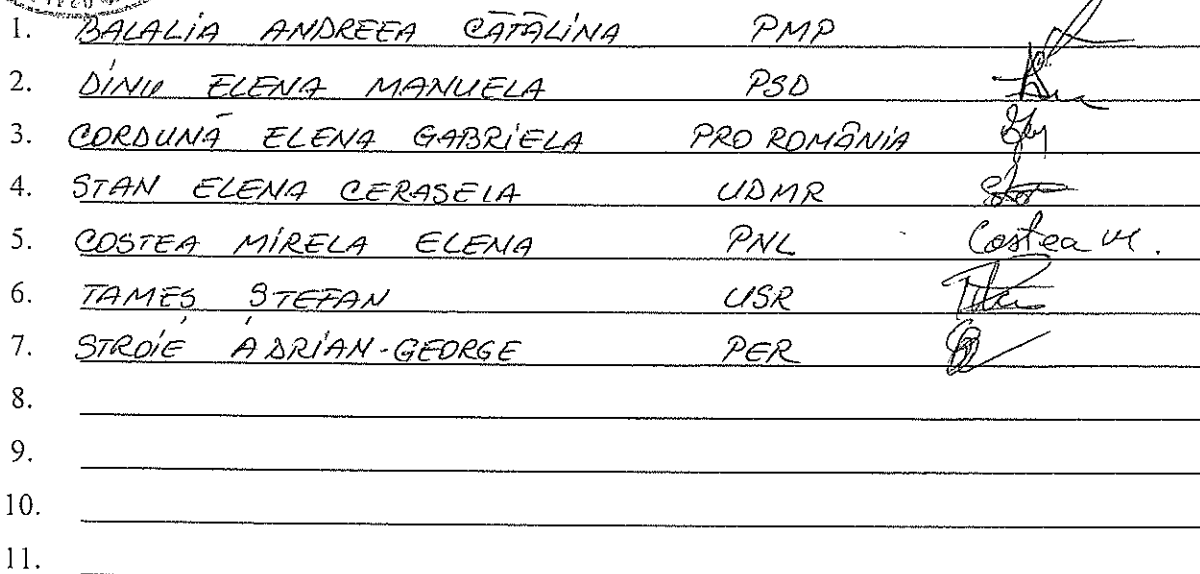 1. BALALIA ANDREEA CĂTĂLINA PMP
2. DINU ELENA MANUELA PSD
3. CORDUNĂ ELENA GABRIELA PRO ROMÂNIA
4. STAN ELENA CERASELA UDMR
5. COSTEA MIRELA ELENA PNL Costea M.
6. TAMES STEFAN USR
7. STROIE ADRIAN-GEORGE PER
8.
9.
10.
11.